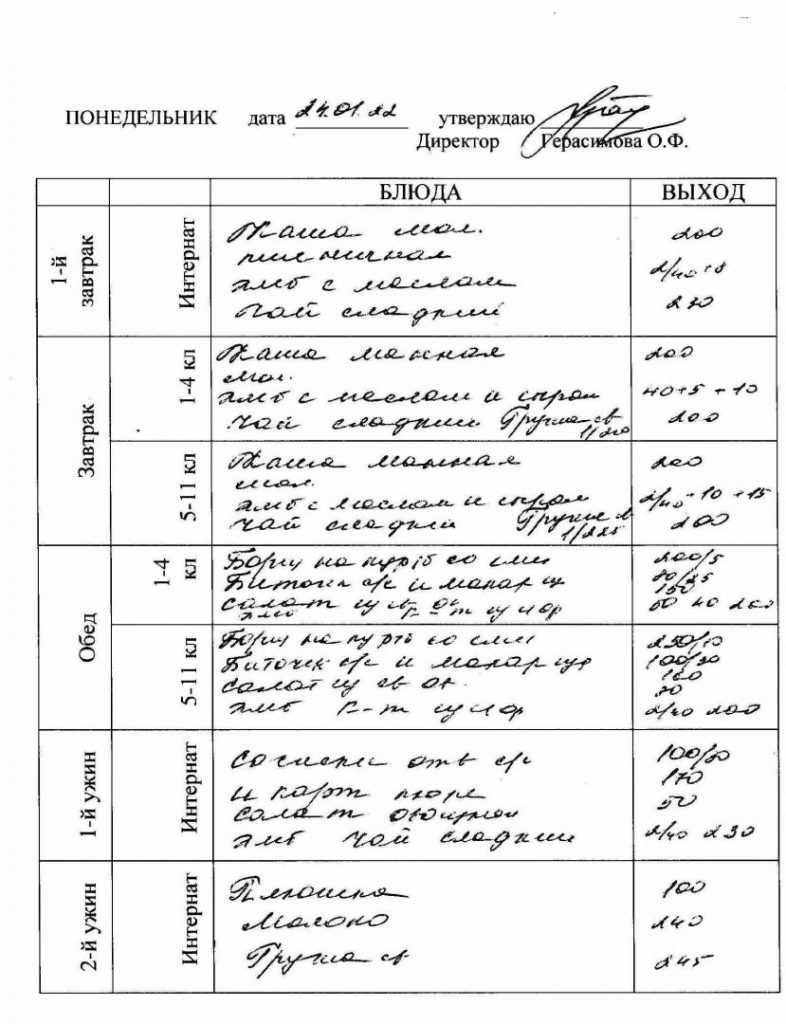 ПОНЕДЕЛЬНИК дата 24.01.22 утверждаю
Директор Герасимова О.Ф.
БЛЮДА ВЫХОД
1-й завтрак Интернат
Каша мол. 200
пшеничная
хлеб с маслом
Чай сладкий
Завтрак
1-4 кл
Каша манная 200
мол.
хлеб с маслом и сыром 40+5+10
Чай сладкий Груша св 200
5-11 кл
Каша манная 200
мол.
хлеб с маслом и сыром 2/40+10+15
Чай сладкий Груша 200
1/225
Обед
1-4 кл
Борщ на со сме 200/5
Биточек с/с и макар
150
салат из св ок 60 40 200
хлеб к-т
5-11 кл
Борщ на со сме 250/10
Биточек с/с и макар
салат из св ок.
хлеб к-т 2/40 200
1-й ужин Интернат
Сосиски отв с/с
170
и карт пюре 50
салат
хлеб Чай сладкий 2/40 230
2-й ужин Интернат
Плюшка 100
Молоко 240
Груша св 245